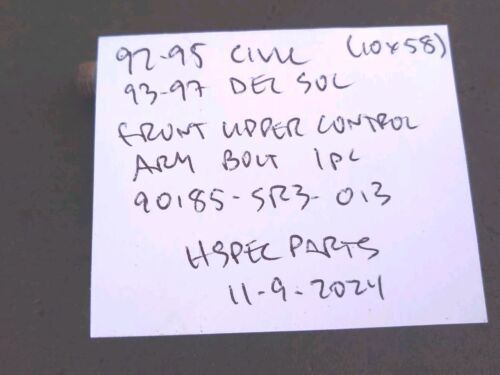 92-95 CIVIC (10x58)
93-97 DEL SOL
FRONT UPPER CONTROL
ARM BOLT 1PC
90185-SR3-013
HSPEC PARTS
11-9-2024